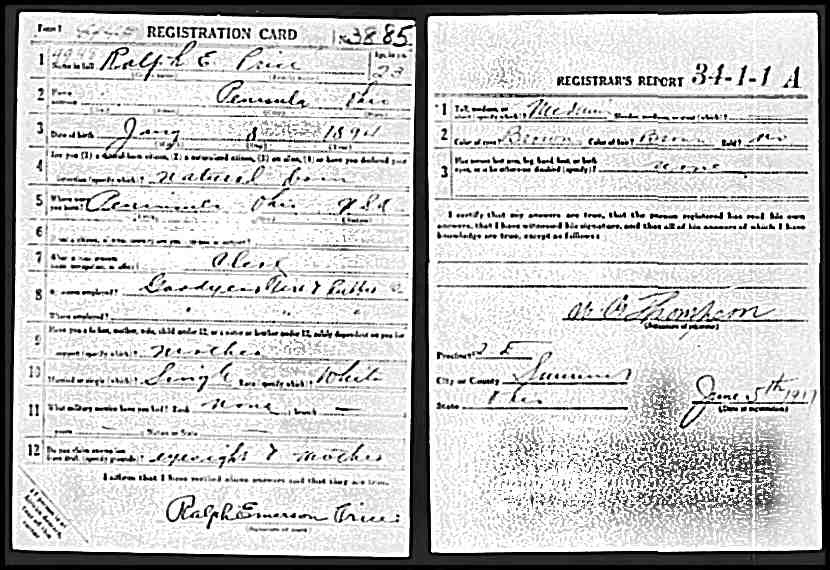 Form 1 REGISTRATION CARD No. 3885
1 Name in full Ralph E. Price Age, in yrs. 23
2 Home address Peninsula Ohio
3 Date of birth Jany 8 1894
4 Are you (1) a natural born citizen, (2) a naturalized citizen, (3) an alien, (4) or have you declared your
intention (specify which)? Natural born
5 Where were you born? Peninsula Ohio USA
6
7 What is your present trade, occupation, or office? Clerk
8 By whom employed? Goodyear Tire & Rubber Co
Where employed? " " "
9 Have you a father, mother, wife, child under 12, or a sister or brother under 12, solely dependent on you for
support (specify which)? Mother
10 Married or single (which)? Single Race (specify which)? White
11 What military service have you had? Rank None ; branch —
years — ; Nation or State —
12 Do you claim exemption from draft (specify grounds)? eyesight & mother
I affirm that I have verified above answers and that they are true.
Ralph Emerson Price
REGISTRAR'S REPORT 34-1-1 A
1 Tall, medium, or short (specify which)? Medium Slender, medium, or stout (which)?
2 Color of eyes? Brown Color of hair? Brown Bald? No
3 Has person lost arm, leg, hand, foot, or both
eyes, or is he otherwise disabled (specify)? None
I certify that my answers are true, that the person registered has read his own
answers, that I have witnessed his signature, and that all of his answers of which I have
knowledge are true, except as follows:
Thompson
(Signature of registrar)
Precinct
City or County Summit
State Ohio
June 5th 1917
(Date of registration)